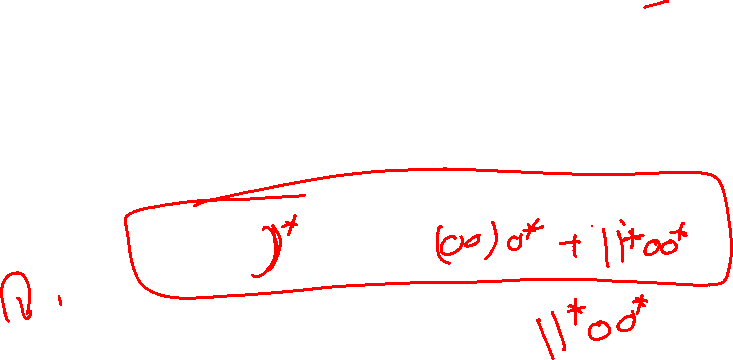 )* (00)0* + 11*00*
11*00*